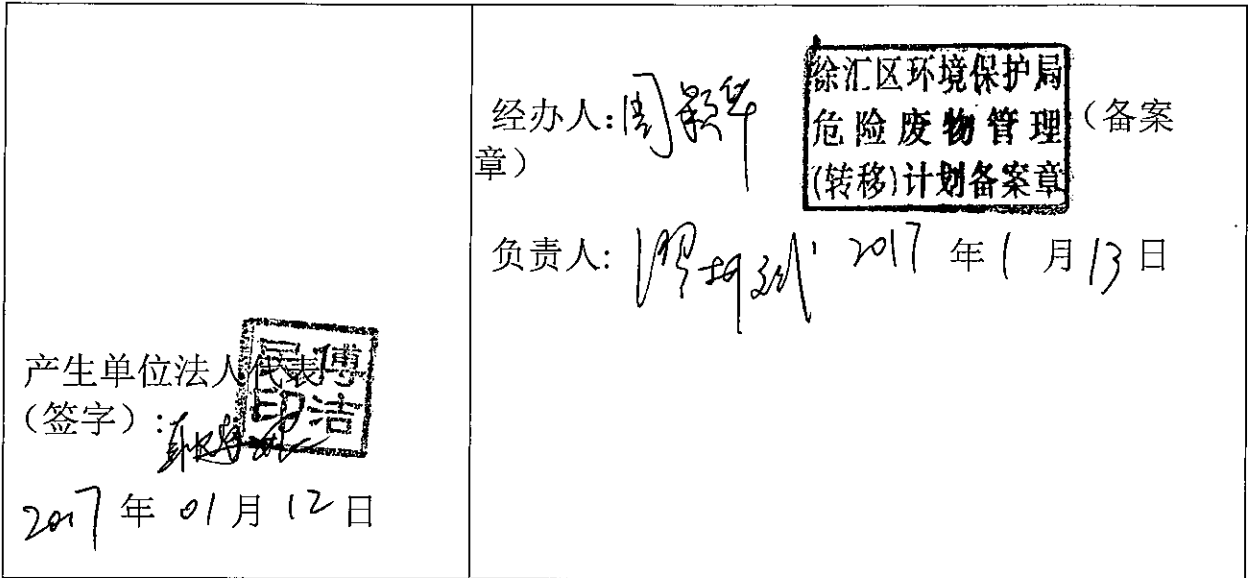 产生单位法人代表
(签字):
2017 年 01 月 12 日
经办人:周颖华 (备案
章)
徐汇区环境保护局
危险废物管理
(转移)计划备案章
负责人: 2017 年 1 月 13 日